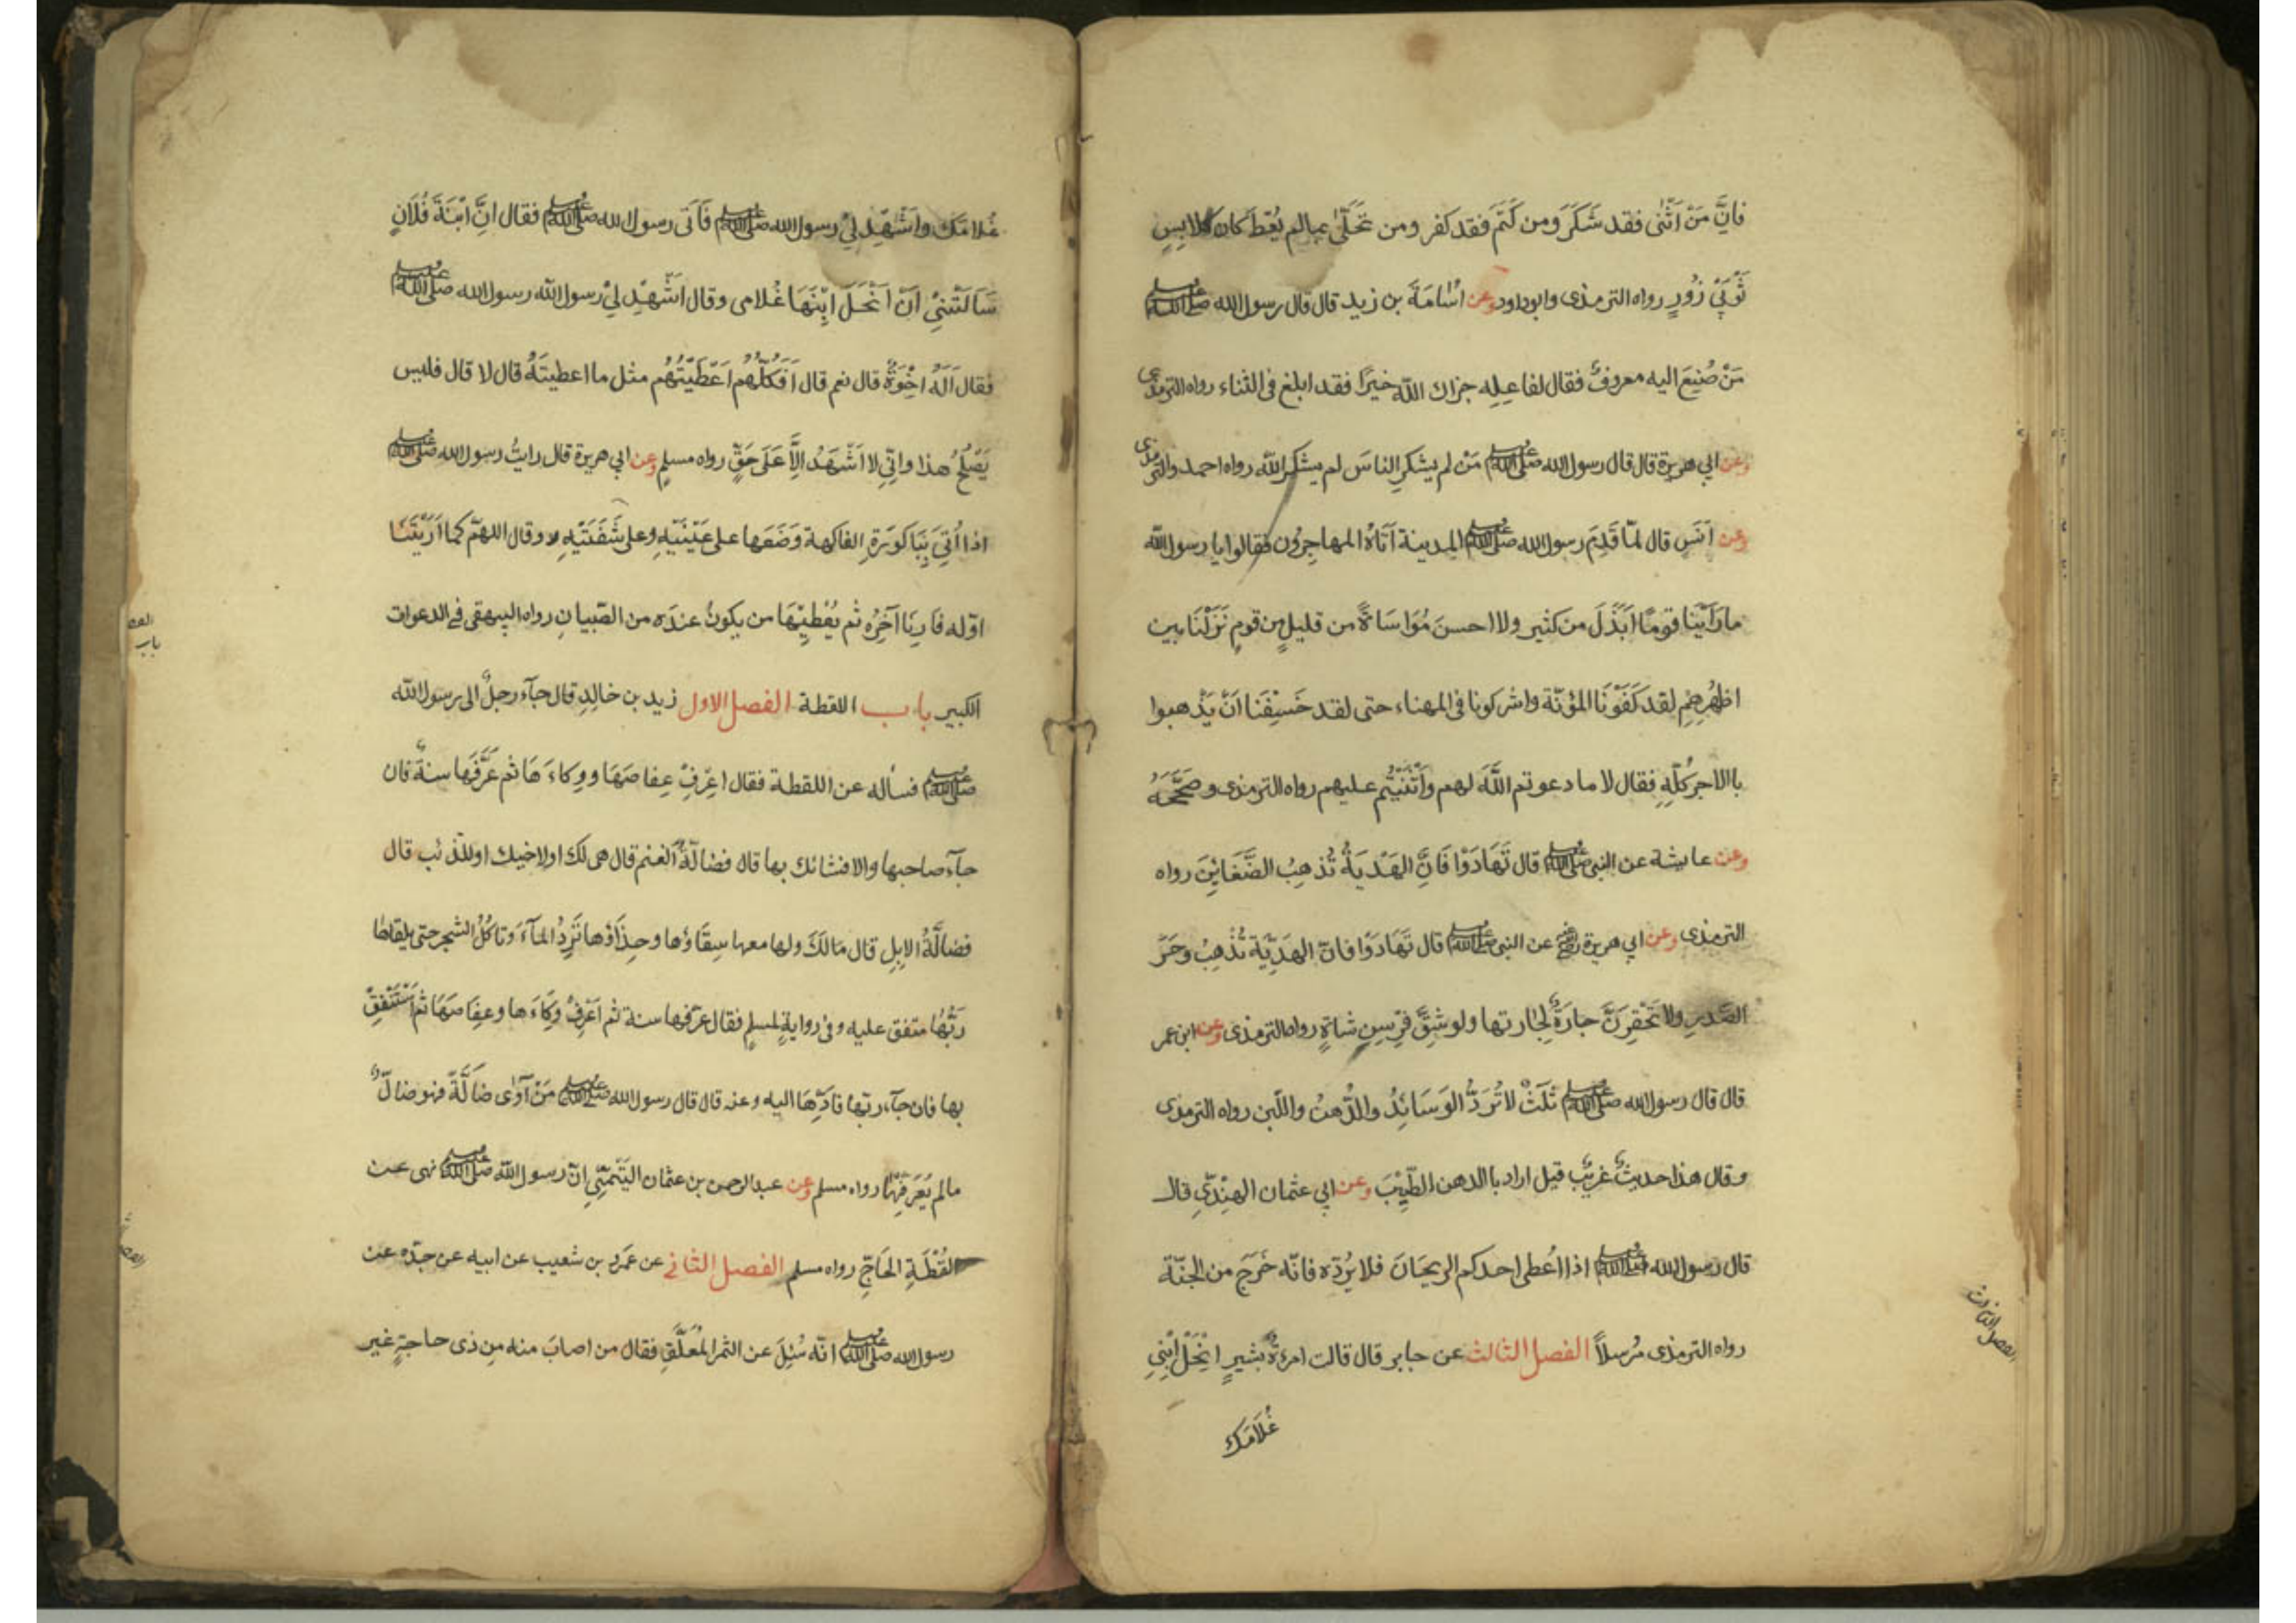 فَاِنَّ مَنْ اَثْنٰى فقد شَكَرَ ومن كَتَمَ فقد كفر ومن تَحَلّٰى بمالم يُعْطَ كان كلابِسِ
ثَوْبَىْ زُوْرٍ رواه الترمذى وابوداود وعن اُسَامَةَ بن زيد قال قال رسول الله صلى الله عليه وسلم
مَنْ صُنِعَ اليه معروفٌ فقال لفاعِلِه جزاك اللّٰه خيرًا فقد ابلغ فى الثناء رواه الترمذى
وعن ابي هريرة قال قال رسول الله صلى الله عليه وسلم مَنْ لم يشكرِ الناسَ لم يشكرِ اللّٰه رواه احمد والترمذى
وعن اَنَسٍ قال لمّا قَدِمَ رسول الله صلى الله عليه وسلم المدينة اَتَاهُ المهاجرُون فقالوا يا رسول اللّٰه
ما رَاَيْنا قومًا اَبْذَلَ من كثيرٍ ولا احسنَ مُوَاسَاةً من قليلٍ من قومٍ نَزَلْنَا بين
اظهُرِهِمْ لقد كَفَوْنَا المؤنَة واشركونا فى المهناء حتى لقد خَشِيْنَا اَنْ يَذْهبوا
باالاجر كُلّهِ فقال لا ما دعوتم اللّٰهَ لهم واَثْنَيْتُم عليهم رواه الترمذى وصَحَّحَهُ
وعن عايشة عن النبى صلى الله عليه وسلم قال تَهَادَوْا فَاِنَّ الهَدْيَةَ تُذهِبُ الضَّغَايِنَ رواه
الترمذى وعن ابي هريرة رضي عن النبى صلى الله عليه وسلم قال تَهَادَوْا فانّ الهَدِيّة تُذْهِبُ وحَرَ
الصَّدرِ ولا تَحْقِرَنَّ جارَةٌ لِجَارتها ولو شِقَّ فِرْسِنِ شاةٍ رواه الترمذى وعن ابن عمر
قال قال رسول الله صلى الله عليه وسلم ثَلَثٌ لا تُرَدُّ الوَسَائِدُ والدُّهنُ واللّبن رواه الترمذى
وقال هذا حديثٌ غريبٌ قيل اراد باالدهن الطِّيْبَ وعن ابي عثمان الهِنْدِيِّ قال
قال رسول الله صلى الله عليه وسلم اذا اُعطى احدكم الريحَانَ فلا يرُدّه فانّه خَرَجَ من الجنّة
رواه الترمذى مُرسلاً الفصل الثالث عن جابر قال قالت امرءةُ بشيرٍ اِنْحَلْ ابْنِي
غُلَامَك
الفصل الثالث
غُلامَك واَشْهِدْ لِيْ رسول الله صلى الله عليه وسلم فَاَتَى رسول الله صلى الله عليه وسلم فقال انَّ ابْنَةَ فُلَانٍ
سَاَلَتْنِيْ اَنْ اَنْحَلَ ابْنَهَا غُلامى وقال اَشْهِدْ لِيْ رسول اللّٰه رسول الله صلى الله عليه وسلم
فقال اَلَهُ اِخْوَةٌ قال نعم قال اَفَكُلَّهُم اَعْطَيْتَهُم مثل ما اعطيتَهُ قال لا قال فليس
يَصْلُحُ هذا وانّى لا اَشْهَدُ اِلَّا عَلَى حَقٍّ رواه مسلم وعن ابي هريرة قال رايتُ رسول الله صلى الله عليه وسلم
اذا اُتِيَ بِبَاكُوْرَةِ الفاكهة وَضَعَها على عَيْنَيْهِ وعلى شَفَتَيْهِ وقال اللهمّ كما اَرَيْتَنَا
اوّله فَاَرِنَا آخِرَه ثم يُعْطِيْهَا من يكونُ عندَه من الصِّبيانِ رواه البيهقى فى الدعوات
الكبير باب اللقطة الفصل الاول زيد بن خالِدٍ قال جآء رجلٌ الى رسول اللّٰه
صلى الله عليه وسلم فسأله عن اللقطة فقال اِعْرِفْ عِفاصَهَا ووِكاءَهَا ثم عَرِّفْها سنةً فان
جآء صاحبها والا فشانك بها قال فضالّةُ الغنم قال هى لك او لاخيك او للذئب قال
فضالَّةُ الابِلِ قال مَالَكَ ولها معها سِقَاؤُها وحِذَاؤُها تَرِدُ المآءَ وتاكُلُ الشجر حتى يلقاها
رَبُّهَا متفق عليه وفى روايةٍ لمسلمٍ فقال عرّفها سنة ثم اَعْرِفْ وِكَاءَها وعِفَاصَهَا ثم اَسْتَنْفِقْ
بها فان جآء ربّها فادّهَا اليه وعنه قال قال رسول الله صلى الله عليه وسلم مَنْ آوٰى ضَالَّةً فهو ضالٌّ
مالم يُعَرِّفْهَا رواه مسلم وعن عبد الرحمن بن عثمان التَيْمِيِّ انّ رسول اللّٰه صلى الله عليه وسلم نهى عن
لُقْطَةِ الحَاجِّ رواه مسلم الفصل الثانى عن عمرو بن شعيب عن ابيه عن جدّه عن
رسول الله صلى الله عليه وسلم انّه سُئِلَ عن الثمر المُعَلَّقِ فقال من اصابَ منه مِن ذى حاجةٍ غير
باب